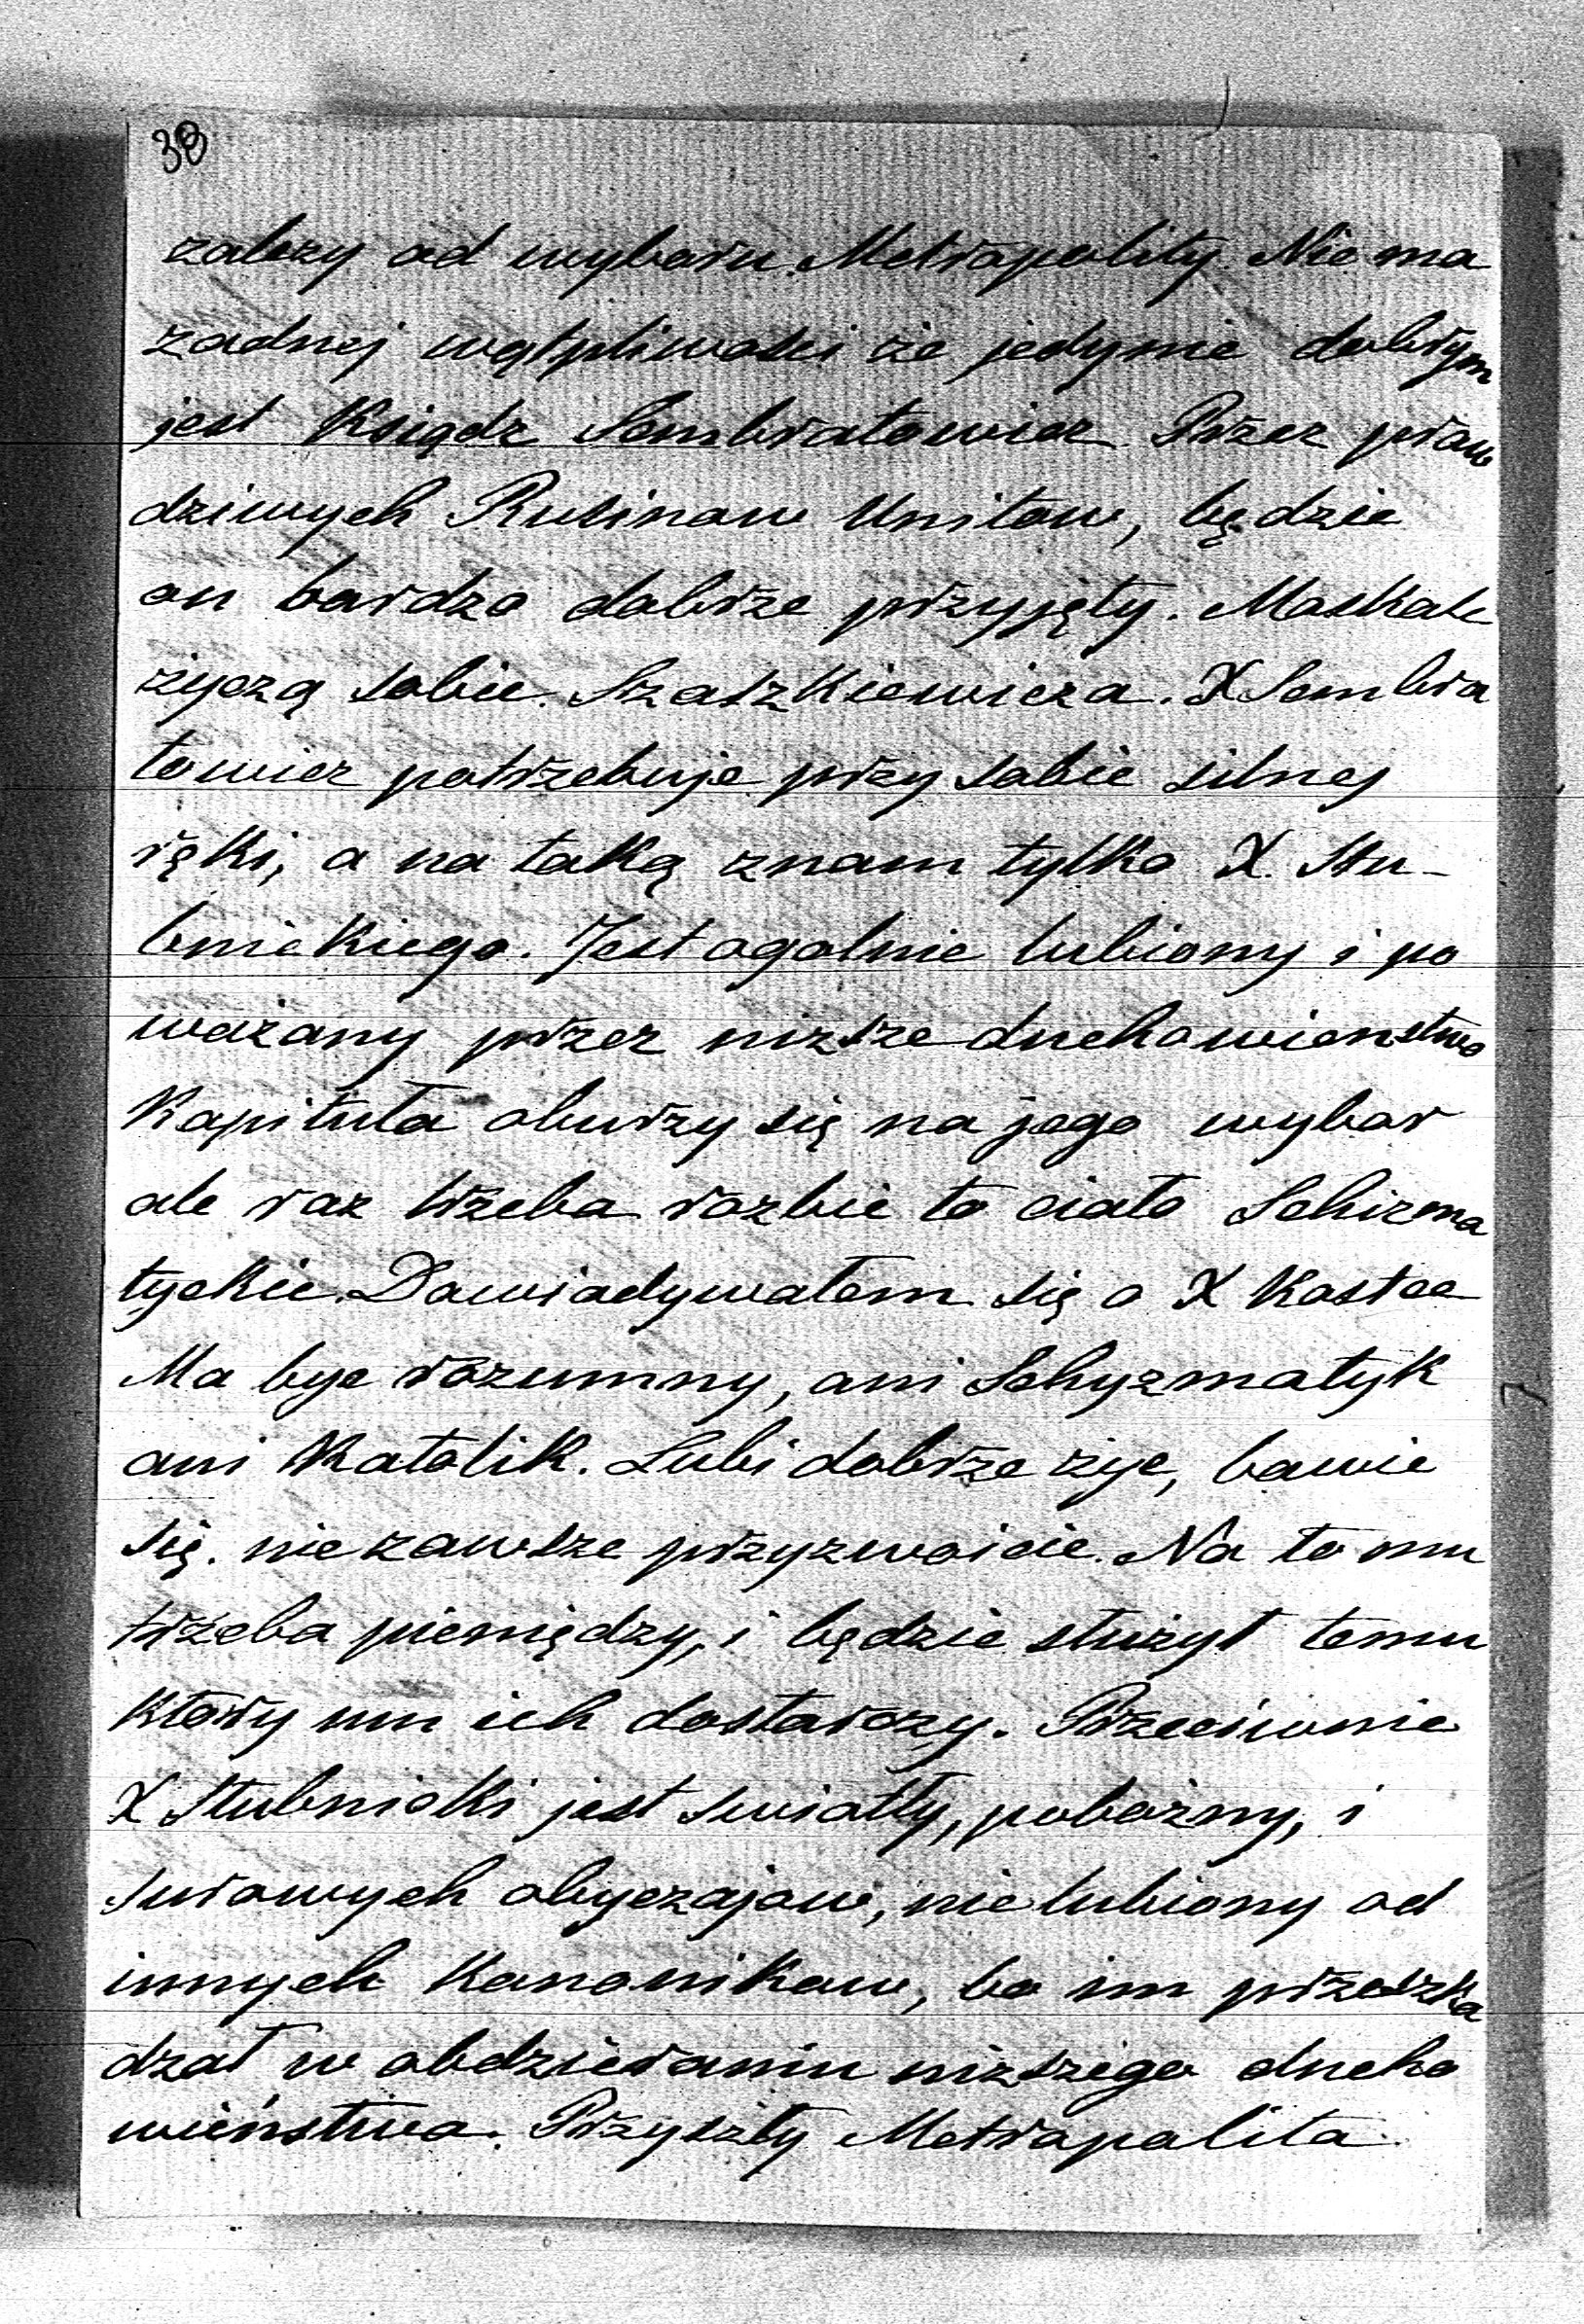 38
zalezy od wyboru Metropolity. Nie ma
zadnej wątpliwosci że jedynie dobrym
jest Ksiądz Sembratowicz. Przez praw
dziwych Rusinow Unitow, będzie
on bardzo dobrze przyjęty. Moskale
życzą sobie Szaszkiewicza. X Sembra
towicz potrzebuje przy sobie silnej
ręki, a na taką znam tylko X. Stu-
bnickiego. Jest ogolnie lubiony i po
ważany przez nizsze duchowienstwo
Kapituła oburzy się na jego wybor
ale raz trzeba rozbic to ciało Schizma
tyckie. Dowiadywałem się o X Kostce
Ma byc rozumny, ani Schyzmatyk
ani Katolik. Lubi dobrze życ, bawic
się, nie zawsze przyzwoicie. Na to mu
trzeba pieniędzy, i będzie służył temu
ktory mu ich dostarczy. Przeciwnie
X Stubnicki jest swiatły, pobożny, i
surowych obyczajow, nie lubiony od
innych Kanonikow, bo im przeszka
dzał w obdzieraniu nizszego ducho
wieństwa. Przyszły Metropolita